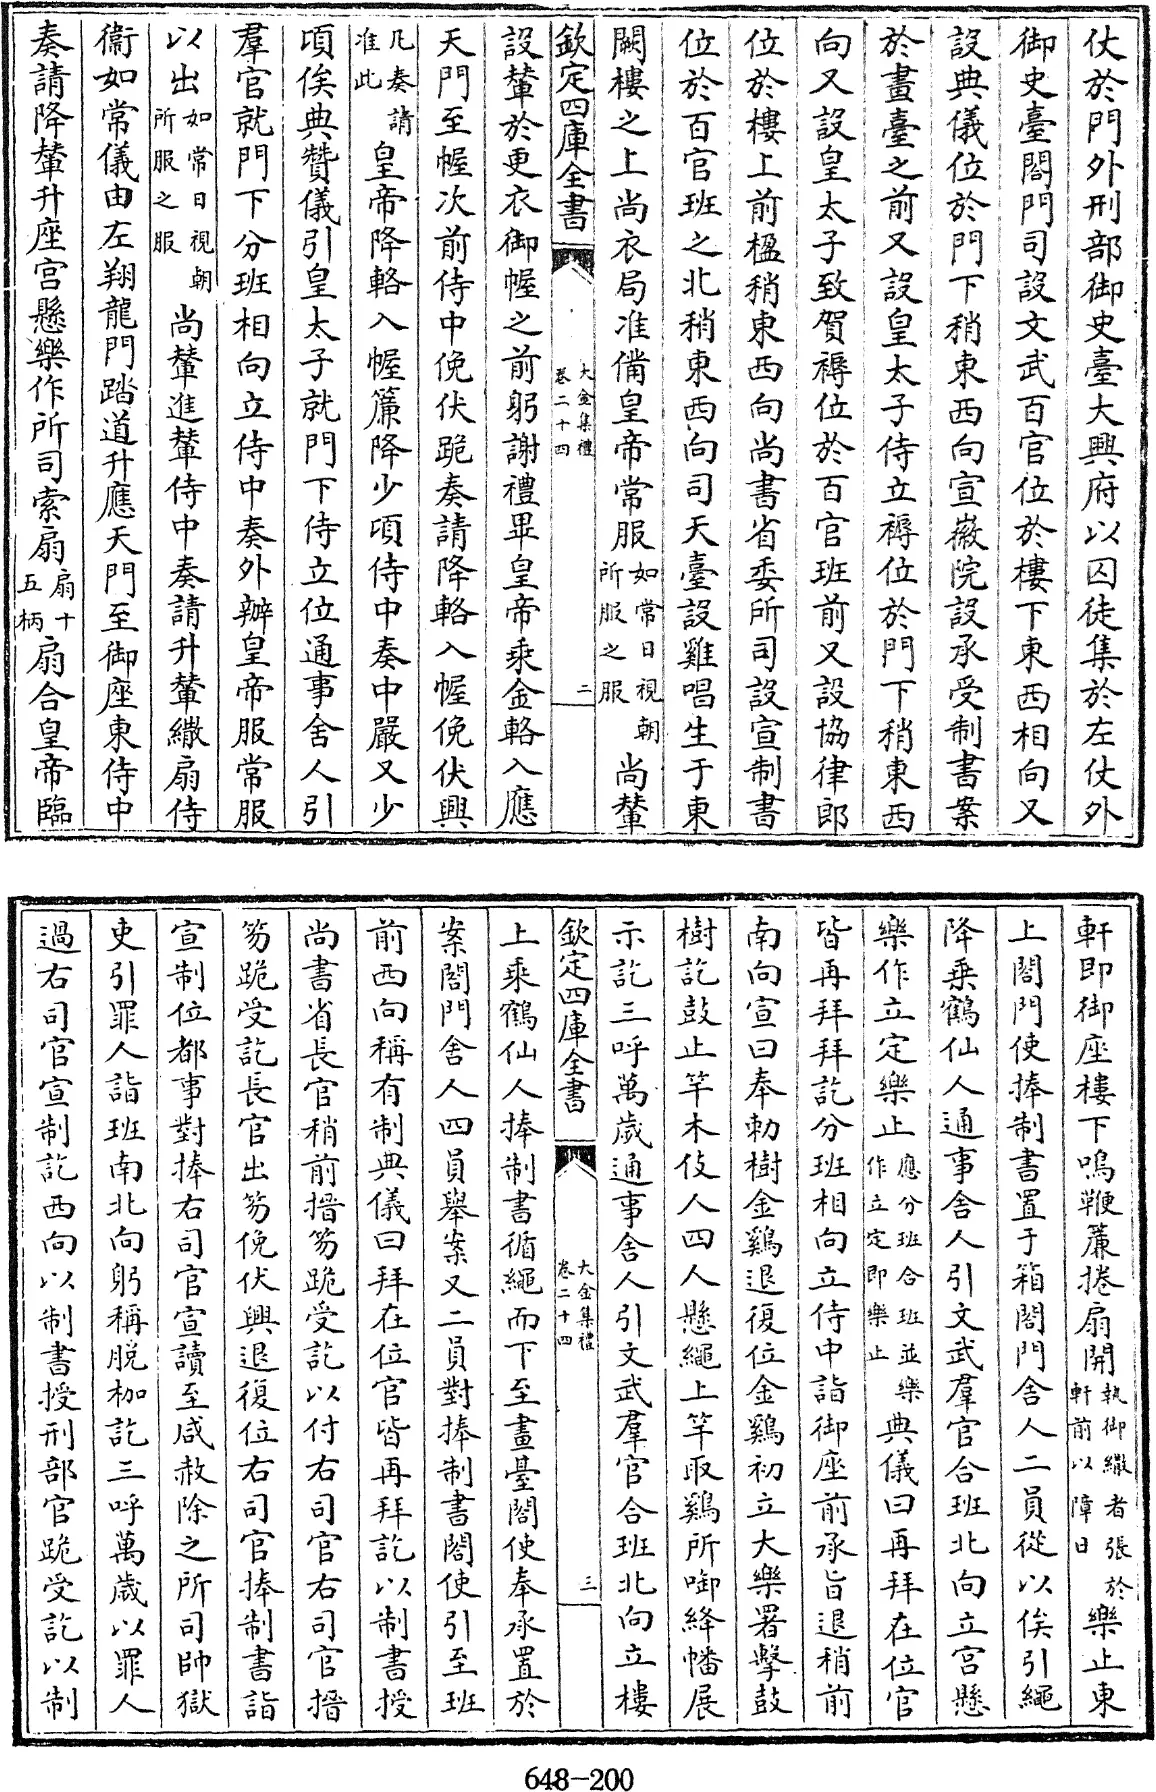 仗於門外刑部御史臺大興府以囚徒集於左仗外
御史臺閤門司設文武百官位於樓下東西相向又
設典儀位於門下稍東西向宣徽院設承受制書案
於畫臺之前又設皇太子侍立褥位於門下稍東西
向又設皇太子致賀褥位於百官班前又設協律郎
位於樓上前楹稍東西向尚書省委所司設宣制書
位於百官班之北稍東西向司天臺設雞唱生于東
闕樓之上尚衣局准備皇帝常服如常日視朝所服之服尚輦
欽定四庫全書
大金集禮
卷二十四
二
設輦於更衣御幄之前躬謝禮畢皇帝乘金輅入應
天門至幄次前侍中俛伏跪奏請降輅入幄俛伏興
凡奏請准此皇帝降輅入幄簾降少頃侍中奏中嚴又少
頃俟典贊儀引皇太子就門下侍立位通事舍人引
羣官就門下分班相向立侍中奏外辦皇帝服常服
以出如常日視朝所服之服尚輦進輦侍中奏請升輦繖扇侍
衞如常儀由左翔龍門踏道升應天門至御座東侍中
奏請降輦升座宮懸樂作所司索扇扇十五柄扇合皇帝臨
軒即御座樓下鳴鞭簾捲扇開執御繖者張於軒前以障日樂止東
上閤門使捧制書置于箱閤門舍人二員從以俟引繩
降乘鶴仙人通事舍人引文武羣官合班北向立宮懸
樂作立定樂止應分班合班並樂作立定即樂止典儀曰再拜在位官
皆再拜拜訖分班相向立侍中詣御座前承旨退稍前
南向宣曰奉勅樹金鷄退復位金鷄初立大樂署擊鼓
樹訖鼓止竿木伎人四人懸繩上竿取鷄所啣絳幡展
示訖三呼萬歲通事舍人引文武羣官合班北向立樓
欽定四庫全書
大金集禮
卷二十四
三
上乘鶴仙人捧制書循繩而下至畫臺閤使奉承置於
案閤門舍人四員舉案又二員對捧制書閤使引至班
前西向稱有制典儀曰拜在位官皆再拜訖以制書授
尚書省長官稍前搢笏跪受訖以付右司官右司官搢
笏跪受訖長官出笏俛伏興退復位右司官捧制書詣
宣制位都事對捧右司官宣讀至咸赦除之所司帥獄
吏引罪人詣班南北向躬稱脫枷訖三呼萬歲以罪人
過右司官宣制訖西向以制書授刑部官跪受訖以制
648-200